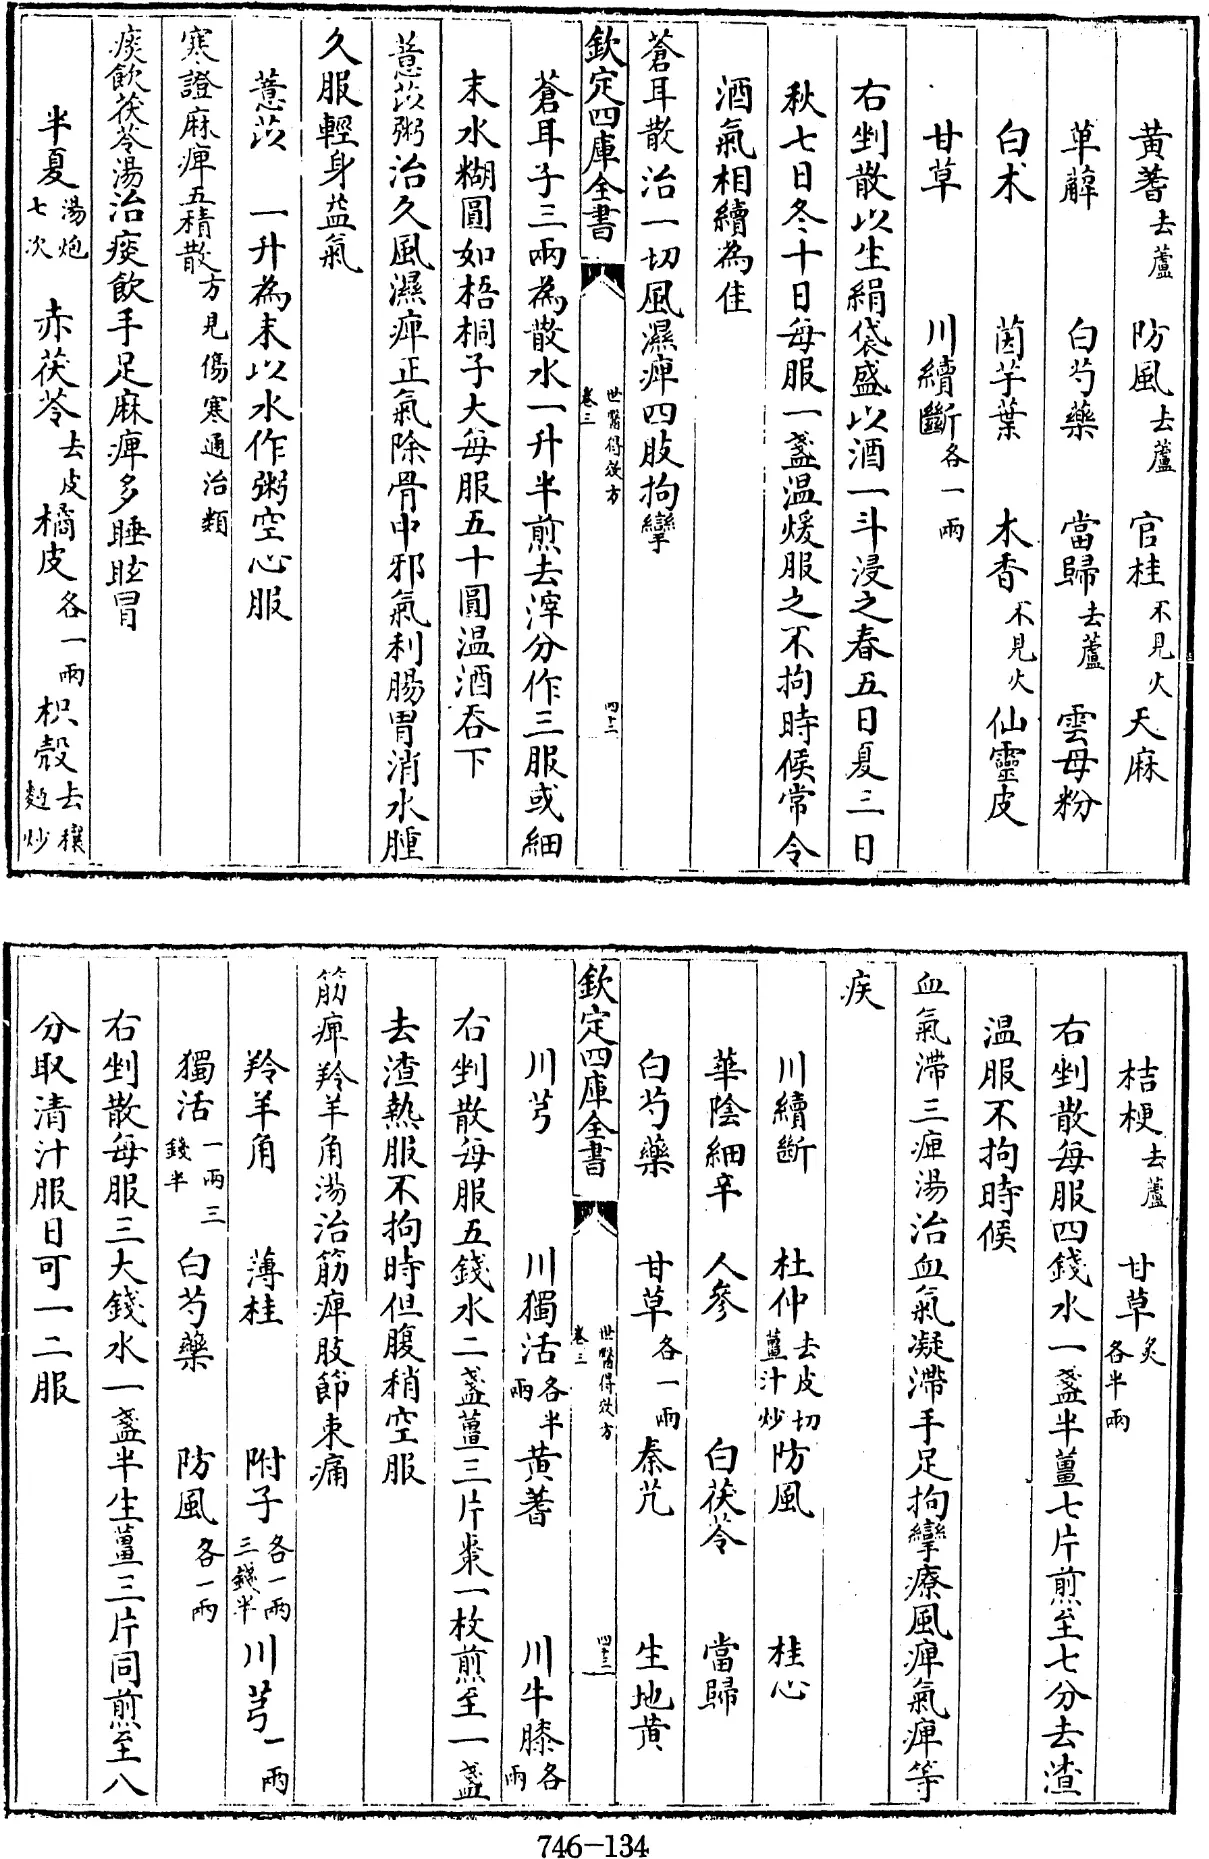 黄蓍去蘆 防風去蘆 官桂不見火 天麻
萆薢 白芍藥 當歸去蘆 雲母粉
白术 茵芋葉 木香不見火 仙靈皮
甘草 川續斷各一兩
右剉散以生絹袋盛以酒一斗浸之春五日夏三日
秋七日冬十日每服一盞温煖服之不拘時候常令
酒氣相續為佳
蒼耳散治一切風濕痺四肢拘攣
欽定四庫全書 世醫得效方 卷三 四十二
蒼耳子三兩為散水一升半煎去滓分作三服或細
末水糊圓如梧桐子大每服五十圓温酒吞下
薏苡粥治久風濕痺正氣除骨中邪氣利腸胃消水腫
久服輕身益氣
薏苡 一升為末以水作粥空心服
寒證麻痺五積散方見傷寒通治類
痰飲茯苓湯治痰飲手足麻痺多睡眩冒
半夏湯炮七次 赤茯苓去皮 橘皮各一兩 枳殻去穰麩炒
桔梗去蘆 甘草炙各半兩
右剉散每服四錢水一盞半薑七片煎至七分去渣
温服不拘時候
血氣滯三痺湯治血氣凝滯手足拘攣療風痺氣痺等
疾
川續斷 杜仲去皮切薑汁炒 防風 桂心
華陰細辛 人參 白茯苓 當歸
白芍藥 甘草各一兩 秦艽 生地黄
欽定四庫全書 世醫得效方 卷三 四十三
川芎 川獨活各半兩 黄蓍 川牛膝各兩
右剉散每服五錢水二盞薑三片棗一枚煎至一盞
去渣熱服不拘時但腹稍空服
筋痺羚羊角湯治筋痺肢節束痛
羚羊角 薄桂 附子各一兩三錢半 川芎一兩
獨活一兩三錢半 白芍藥 防風各一兩
右剉散每服三大錢水一盞半生薑三片同煎至八
分取清汁服日可一二服
746-134